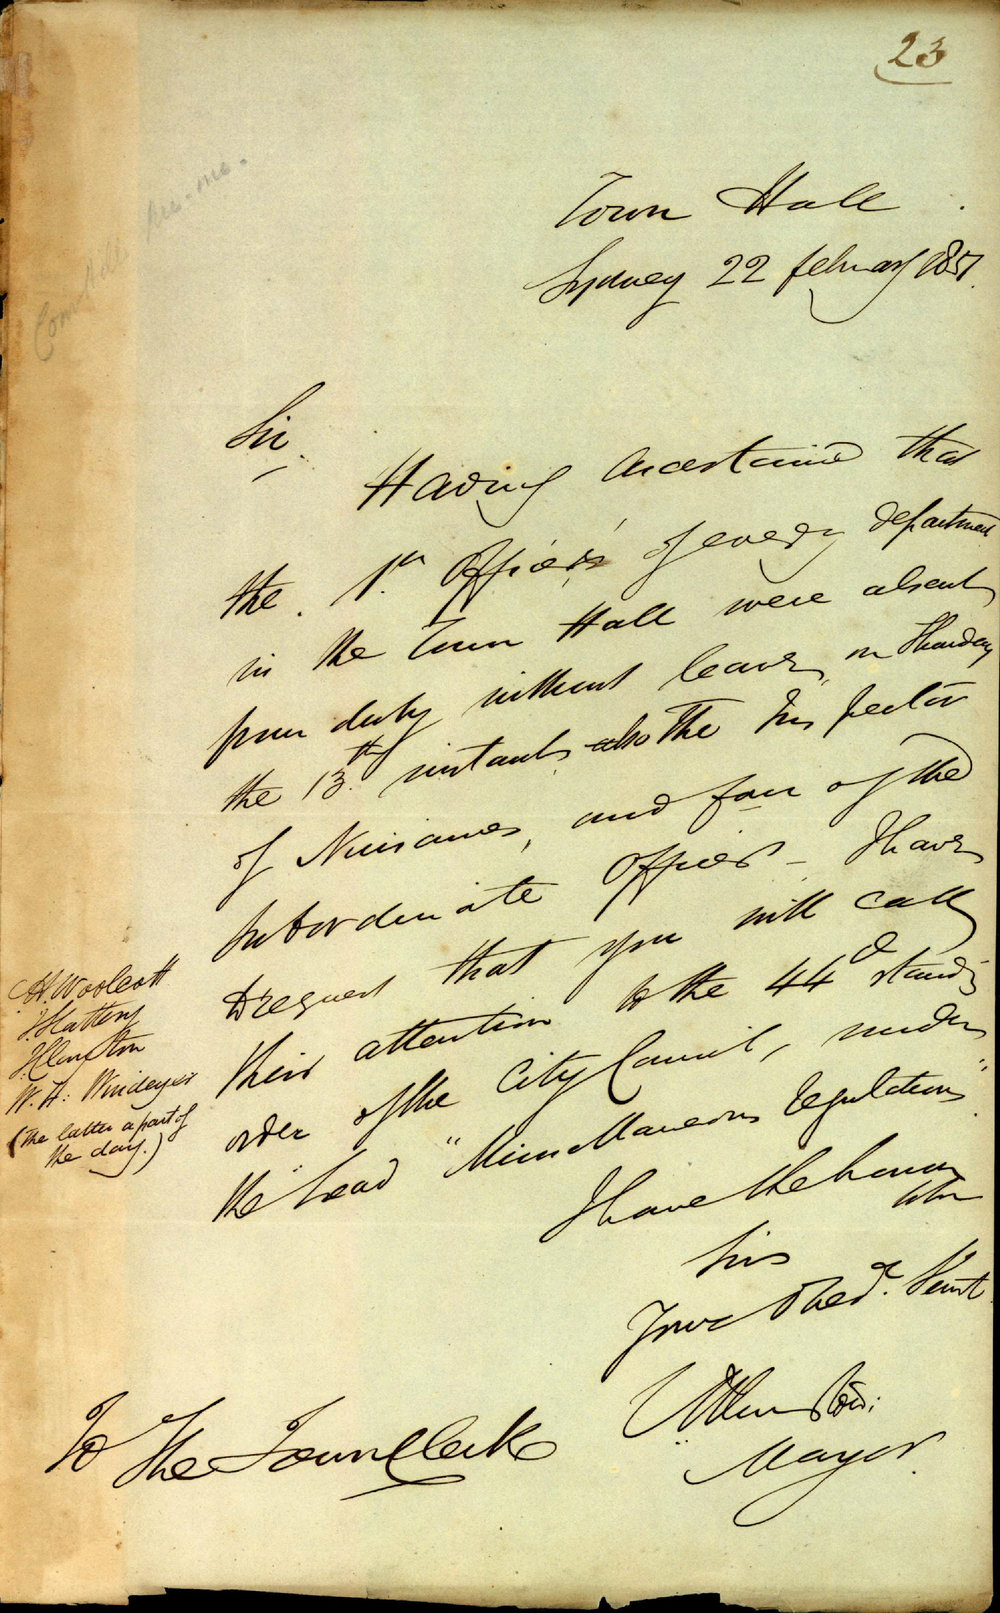 23
Town Hall
Sydney 22 February 1851.
Sir,
Having ascertained that
the 1st Officers of every department
in the Town Hall were absent
from duty without leave, on Thursday
the 13th instant, also the Inspector
of Nuisances, and four of the
subordinate Officers - I have
to request that you will call
their attention to the 44d standing
order of the City Council, under
the head "Miscellaneous regulations"
I have the honor
to be
Sir
Your Obed. Servt
Mayor.
To The Town Clerk
H. Woolcott
Slattery
W. H. Windeyer
(The latter a part of
the day.)